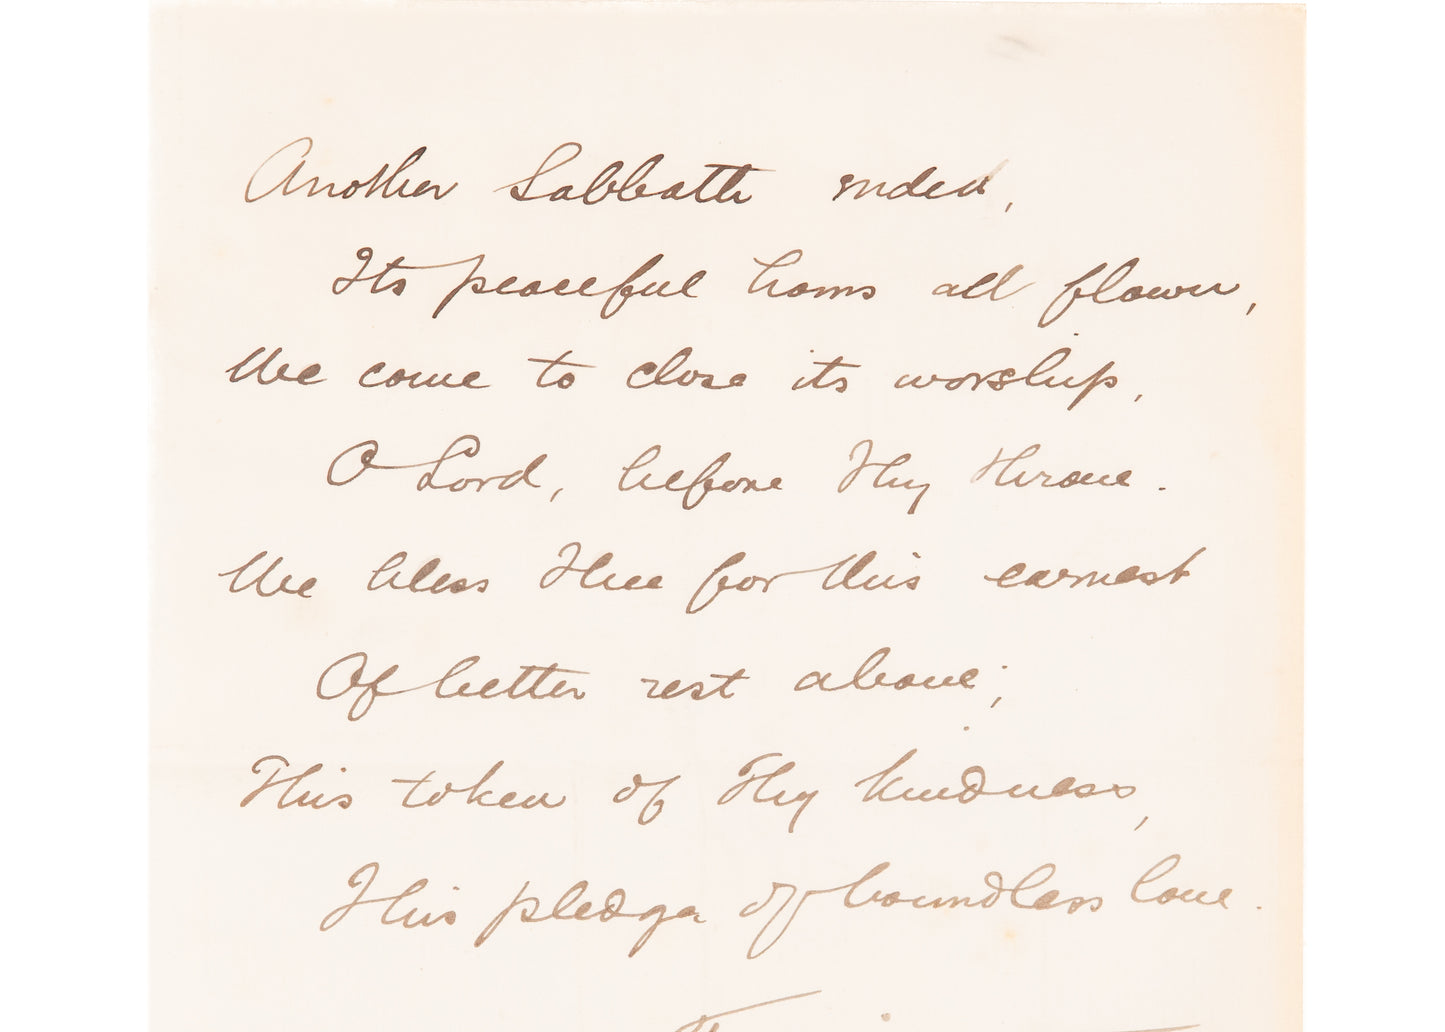 Another Sabbath ended,
Its peaceful hours all flown,
We come to close its worship,
O Lord, before Thy throne.
We bless Thee for this earnest
Of better rest above;
This token of Thy kindness,
This pledge of boundless love.